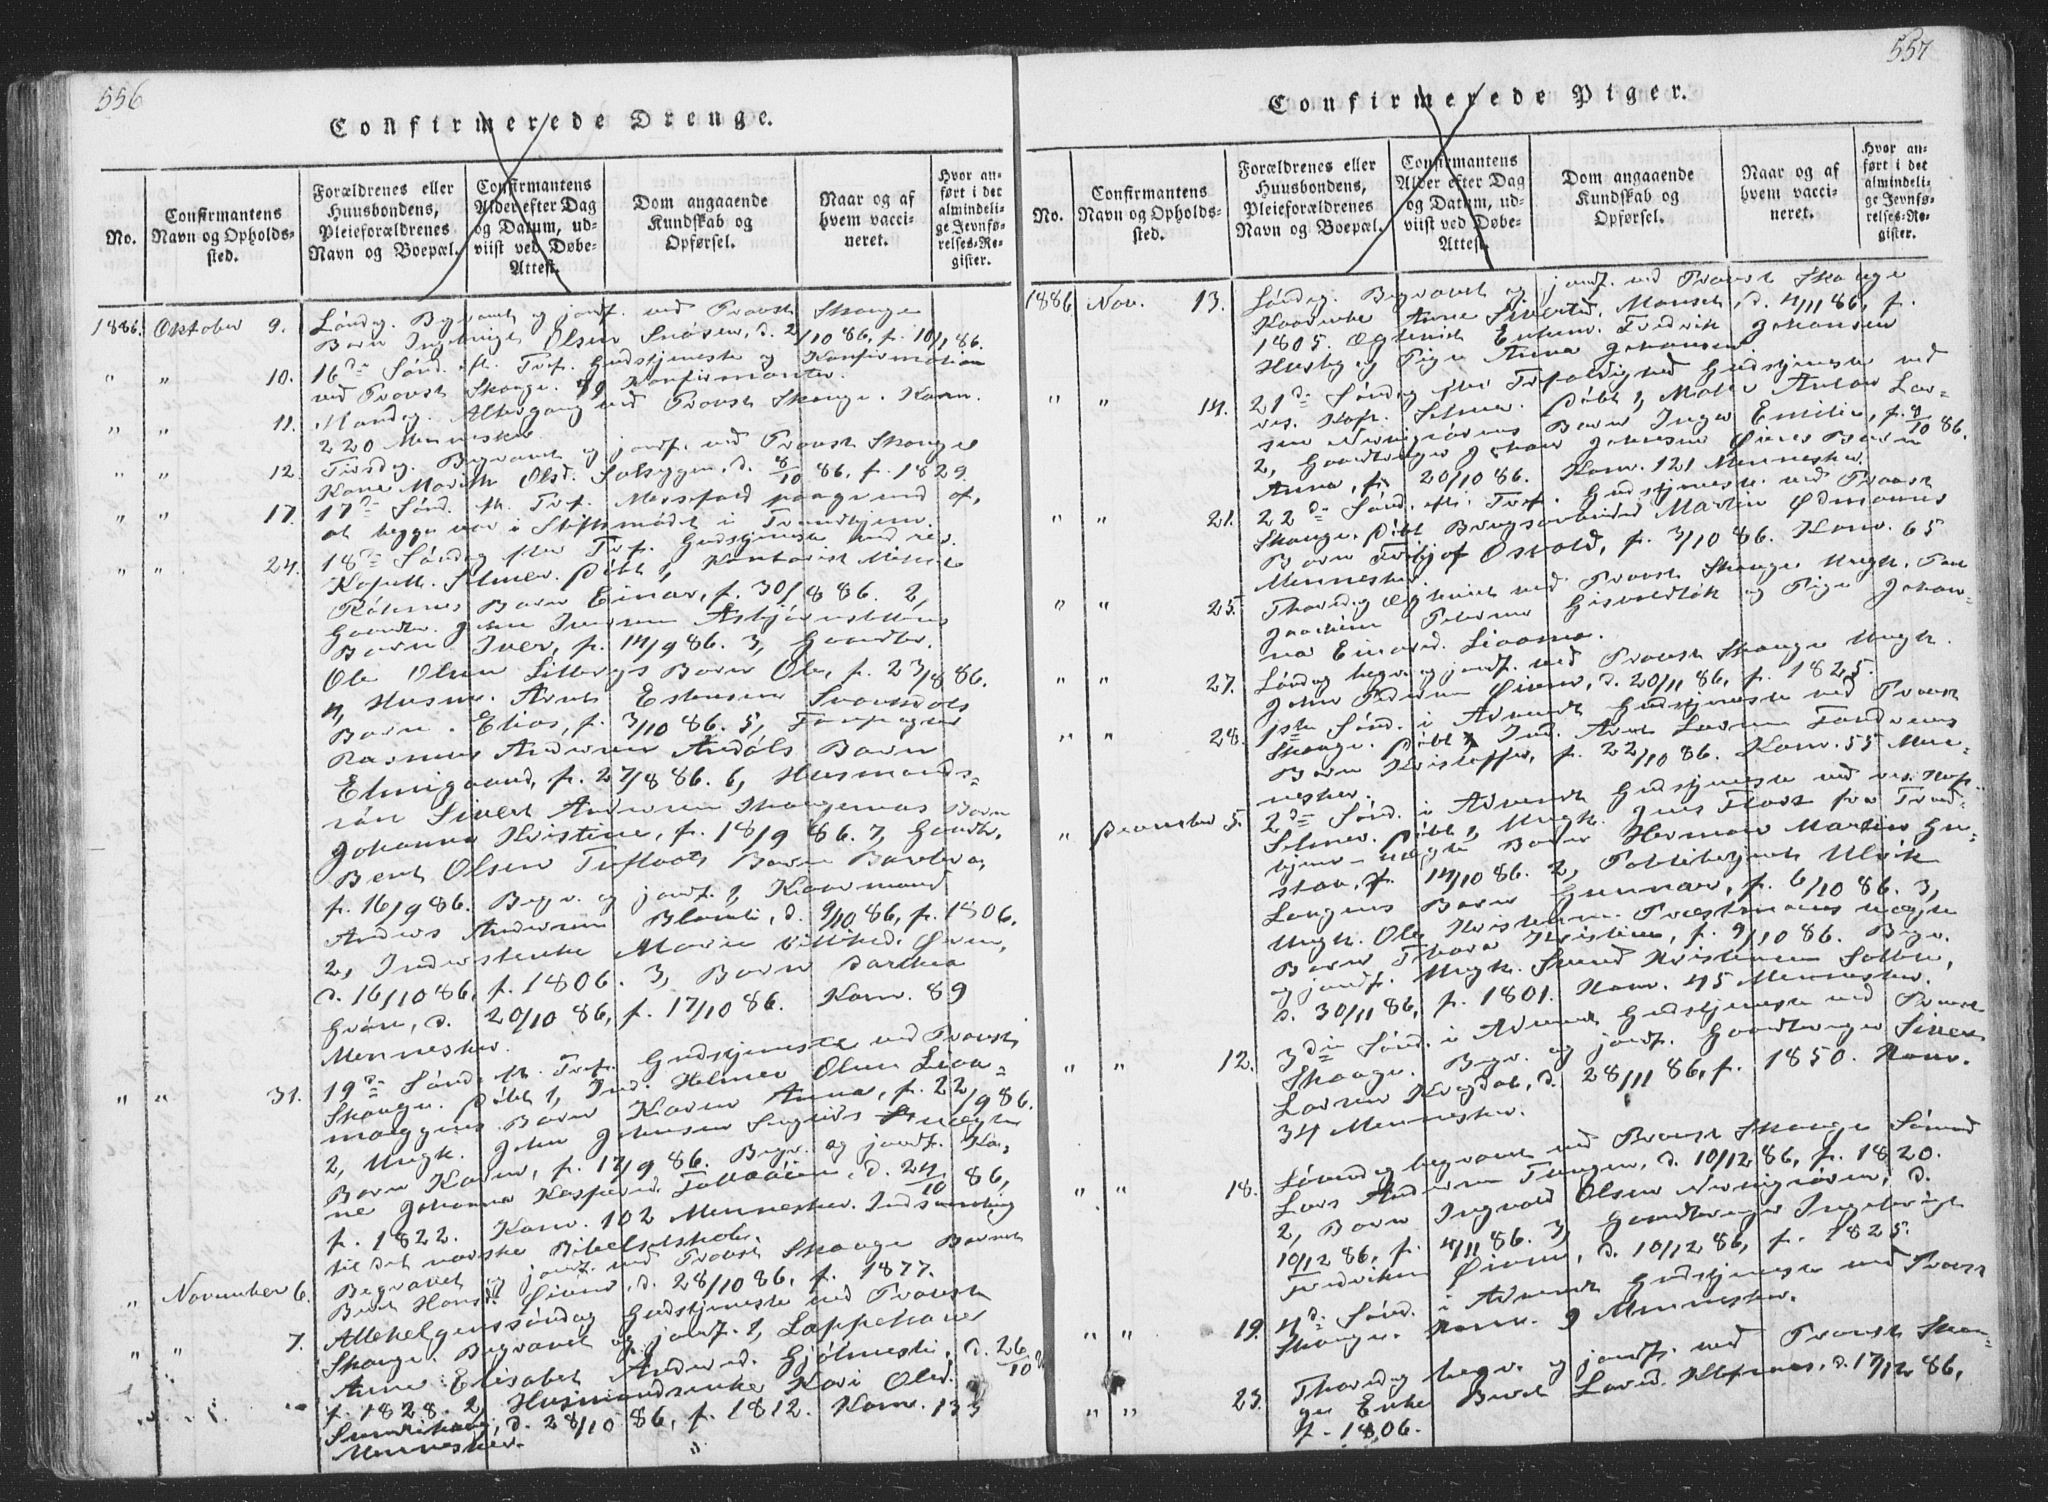 556
Confirmerede Drenge.
No.
Confirmantens Navn og Opholds-sted.
Forældrenes eller Huusbondens, Pleieforældrenes Navn og Boepæl.
Confirmantens Alder efter Dag og Datum, ud-viist ved Døbe-Attest.
Dom angaaende Kundskab og Opførsel.
Naar og af hvem vacci-neret.
Hvor an-ført i det almindeli-ge Jevnfø-relses-Re-gister.
1886. Oktober 9. Løndag. Begravet og jordf. ved Provst Skaage
Barn Ingebrigt Olsen Snøsen, d. 2/10 86, f. 10/1 86.
" " 10. 16de Sønd. eft. Tref. Gudstjeneste og Konfirmation
ved Provst Skaage. 59 Konfirmanter.
" " 11. Mandag. Altergang ved Provst Skaage. Kom.
220 Mennesker.
" " 12. Tirsdag. Begravet og jordf. ved Provst Skaage
Kone Marith Olsd. Solsyggen, d. 8/10 86, f. 1829.
" " 17. 17de Sønd. eft. Tref. Messefald paagrund af,
at begge var i Stiftsmødet i Trondhjem.
" " 24. 18de Søndag efter Tref. Gudstjeneste ved res.
Kapell. Selmer. Døbt 1, Kontorist
Barn Einar, f. 30/8 86. 2,
Gaardbr. John Iversen Asbjørnslettens
Barn Iver, f. 14/9 86. 3, Gaardbr.
Ole Olsen Littbergs Barn Ole, f. 23/8 86.
4, Husm. Arnt Estensen Svorsdals
Barn Elias, f. 3/10 86. 5, Forpagter
Rasmus Andersen Andals Barn
f. 27/8 86. 6, Husmands-
søn Sivert Andersen Skaugemas Barn
Johanna Kristine, f. 18/9 86. 7, Gaardbr.
Bent Olsen Tufloots Barn Barbro,
f. 16/9 86. Begr. og jordf. 1, Kaarmand
Anders Andersen Blomli, d. 9/10 86, f. 1806.
2, Inderstenke Marie Ørom,
d. 16/10 86, f. 1806. 3, Barn Dorthea
Grøn, d. 20/10 86, f. 17/10 86. Kom. 89
Mennesker.
" " 31. 19de Sønd. eft. Tref. Gudstjeneste ved Provst
Skaage. Døbt 1, Ind. Helmer Olsen Lioa-
moeggens Barn Karen Anna, f. 22/9 86.
2, Ungk. John Johnsen uægte
Barn Karen, f. 17/9 86. Begr. og jordf. Ko-
ne Johanna Kaspersd. d. 24/10 86,
f. 1822. Kom. 102 Mennesker. Indsamling
til det norske Bibelselskab.
" November 6. Begravet og jordf. ved Provst Skaage Barnet
Berit Hansd. Øien, d. 28/10 86, f. 1877.
" " 7. Allehelgenssøndag Gudstjeneste ved Provst
Skaage. Begravet og jordf. 1, Lappekone
Anne Elisabet Andersd. Gjølmesli, d. 26/10
f. 1828. 2, Husmandsenke Kari Olsd.
d. 28/10 86, f. 1812. Kom. 133
Mennesker.
557
Confirmerede Piger.
No.
Confirmantens Navn og Opholds-sted.
Forældrenes eller Huusbondens, Pleieforældrenes Navn og Boepæl.
Confirmantens Alder efter Dag og Datum, ud-viist ved Døbe-Attest.
Dom angaaende Kundskab og Opførsel.
Naar og af hvem vacci-neret.
Hvor an-ført i det almindeli-ge Jevnfø-relses-Re-gister.
1886 Nov. 13. Løndag. Begravet og jordf. ved Provst Skaage
Kaarenke Anne Sivertsd. Monset, d. 4/11 86, f.
1805. Ægteviet Enkem. Fredrik Johansen
Husby og Pige Anna Johansen.
" " 14. 21de Søndag efter Trefoldighed Gudstjeneste ved
res. Kap. Selmer. Døbt 1, Maler Anton Lar-
sen Barn Inga Emilie, f. 8/10 86.
2, Gaardbruger Johan Johnsen Øiens Barn
Anna, f. 20/10 86. Kom. 121 Mennesker.
" " 21. 22de Sønd. eft. Tref. Gudstjeneste ved Provst
Skaage. Døbt Brugsarbeider Martin Ødmanns
Barn Osvald, f. 3/10 86. Kom. 65
Mennesker.
" " 25. Thorsdag Ægteviet ved Provst Skaage Ungk. Paul
Joachim Petersen og Pige Johan-
na Einersd. Lioamo.
" " 27. Løndag begr. og jordf. ved Provst Skaage Ungk.
John Pedersen Øien, d. 20/11 86, f. 1825.
" " 28. 1ste Sønd. i Advent Gudstjeneste ved Provst
Skaage. Døbt Ind. Arnt Larsen
Barn Kristoffer, f. 22/10 86. Kom. 55 Men-
nesker.
" December 5. 2de Sønd. i Advent Gudstjeneste ved res. Kap.
Selmer. Døbt 1, Ungk. Jens Floor fra Trond-
hjem uægte Barn Herman Martin Gu-
stav, f. 14/10 86. 2, Politibetjent Ulrik
Langens Barn Gunnar, f. 6/10 86. 3,
Ungk. Ole Kristensen Præstmoens uægte
Barn Thora Kristine, f. 9/10 86. Begr.
og jordf. Ungk. Svend Kristensen Solbu,
d. 30/11 86, f. 1801. Kom. 45 Mennesker.
" " 12. 3die Sønd. i Advent Gudstjeneste ved Provst
Skaage. Begr. og jordf. Gaardbruger Sivert
Larsen Krogdal, d. 28/11 86, f. 1850. Kom.
34 Mennesker.
" " 18. Løverdag begravet ved Provst Skaage Smed
Lars Andersen Tangen, d. 10/12 86, f. 1820.
2, Barn Ingvald Olsen d.
10/12 86, f. 4/11 86. 3, Gaardbruger Ingebrigt
Fredriksen Øien, d. 10/12 86, f. 1825.
" " 19. 4de Sønd. i Advent Gudstjeneste ved Provst
Skaage. Kom. 9 Mennesker.
" " 23. Thorsdag begr. og jordf. ved Provst Skaa-
ge Enke Berit Larsd. d. 17/12 86,
f. 1806.